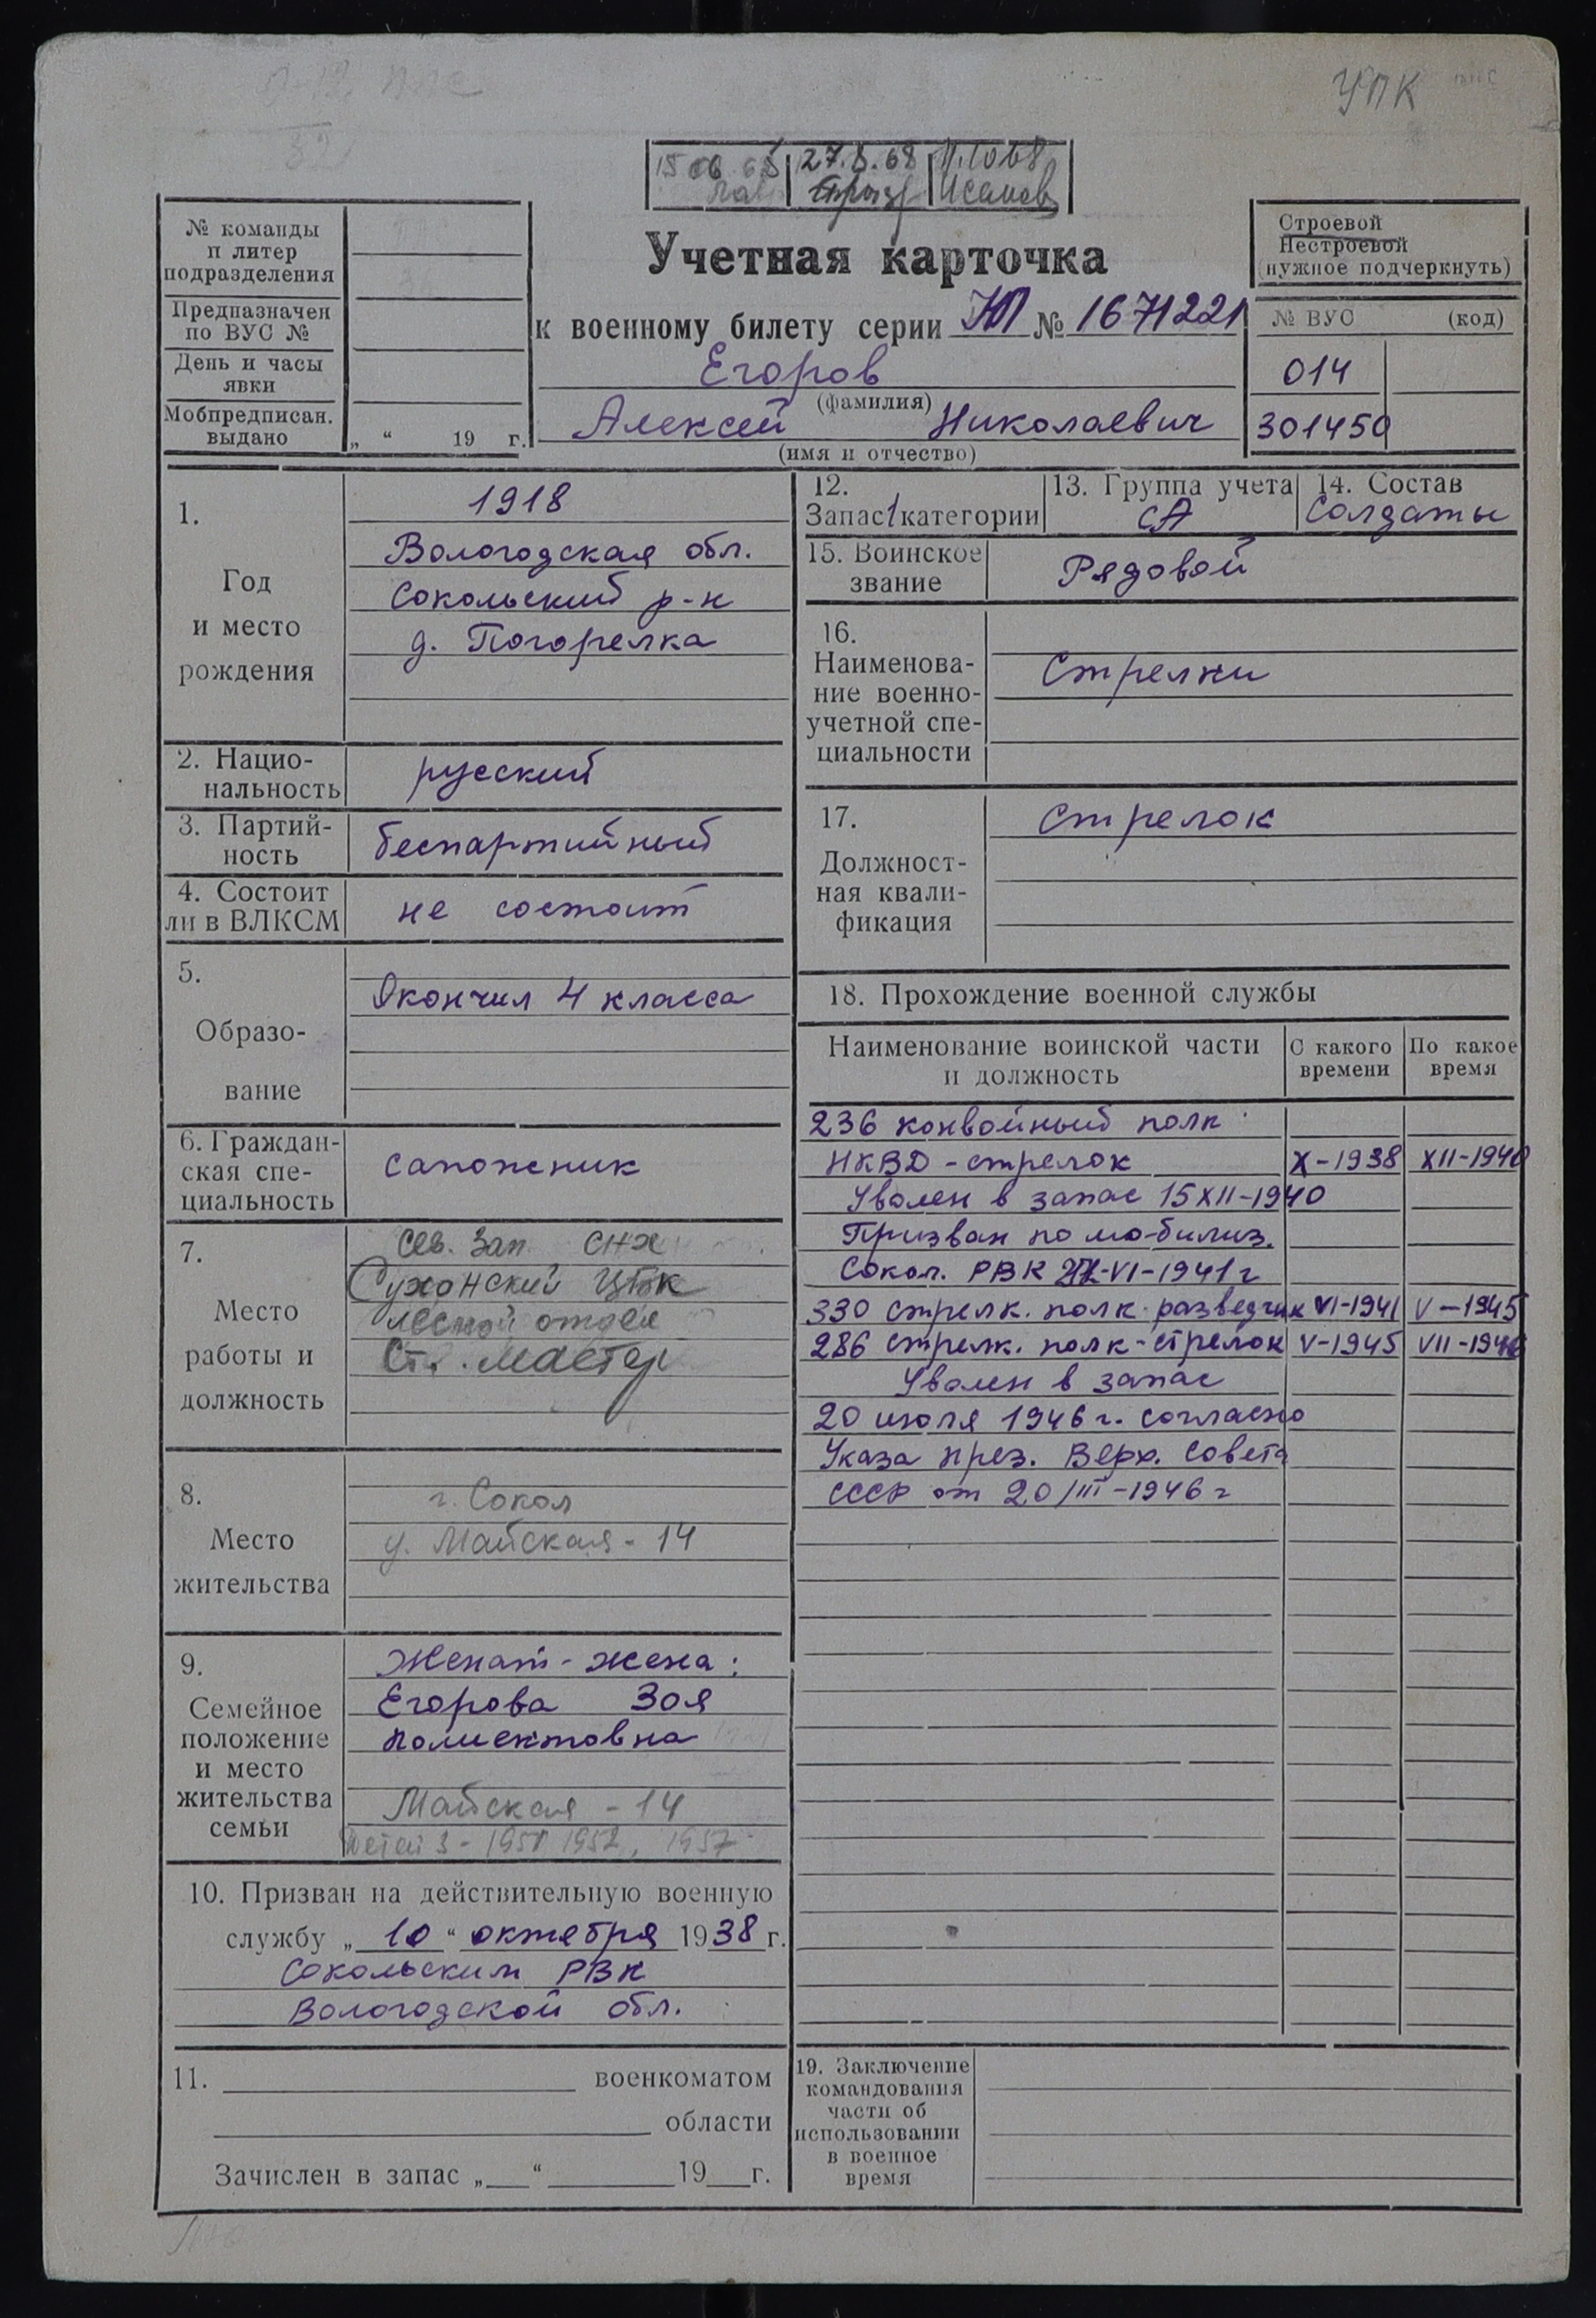 УПК
27.8.68
№ команды
п литер
подразделения
Предназначен
по ВУС №
День и часы
явки
Мобпредписан.
выдано
„ “ 19 г.
Учетная карточка
к военному билету серии НП № 1671221
Егоров
(фамилия)
Алексей Николаевич
(имя и отчество)
Строевой
Нестроевой
(нужное подчеркнуть)
№ ВУС (код)
014
301450
1.
Год
и место
рождения
1918
Вологодская обл.
Сокольский р-н
д. Погорелка
2. Нацио-
нальность
русский
3. Партий-
ность
беспартийный
4. Состоит
ли в ВЛКСМ
не состоит
5.
Образо-
вание
Окончил 4 класса
6. Граждан-
ская спе-
циальность
сапожник
7.
Место
работы и
должность
Сев. Зап СНХ
Сухонский ЦБК
лесной отдел
Ст. мастер
8.
Место
жительства
г. Сокол
у. Майская - 14
9.
Семейное
положение
и место
жительства
семьи
Женат - жена:
Егорова Зоя
Полиектовна
Майская - 14
детей 3 - 1950 1952, 1957
10. Призван на действительную военную
службу „ 10 “ октября 1938 г.
Сокольским РВК
Вологодской обл.
11. военкоматом
области
Зачислен в запас „ “ 19 г.
12.
Запас 1 категории
13. Группа учета
СА
14. Состав
Солдаты
15. Воинское
звание
Рядовой
16.
Наименова-
ние военно-
учетной спе-
циальности
Стрелки
17.
Должност-
ная квали-
фикация
Стрелок
18. Прохождение военной службы
Наименование воинской части
и должность
С какого
времени
По какое
время
236 конвойный полк
НКВД - стрелок X-1938 XII-1940
Уволен в запас 15 XII-1940
Призван по мобилиз.
Сокол. РВК VI-1941 г
330 стрелк. полк разведчик VI-1941 V-1945
286 стрелк. полк - стрелок V-1945 VII-1946
Уволен в запас
20 июля 1946 г. согласно
Указа през. Верх. Совета
СССР от 20/III-1946 г
19. Заключение
командования
части об
использовании
в военное
время